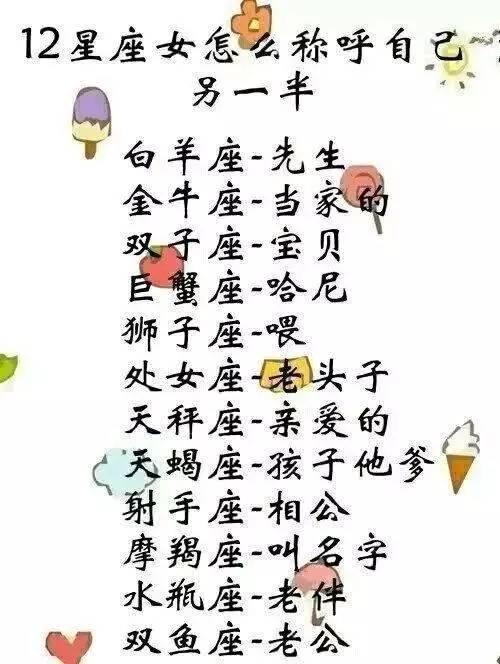 12星座女怎么称呼自己
另一半
白羊座-先生
金牛座-当家的
双子座-宝贝
巨蟹座-哈尼
狮子座-喂
处女座-老头子
天秤座-亲爱的
天蝎座-孩子他爹
射手座-相公
摩羯座-叫名字
水瓶座-老伴
双鱼座-老公